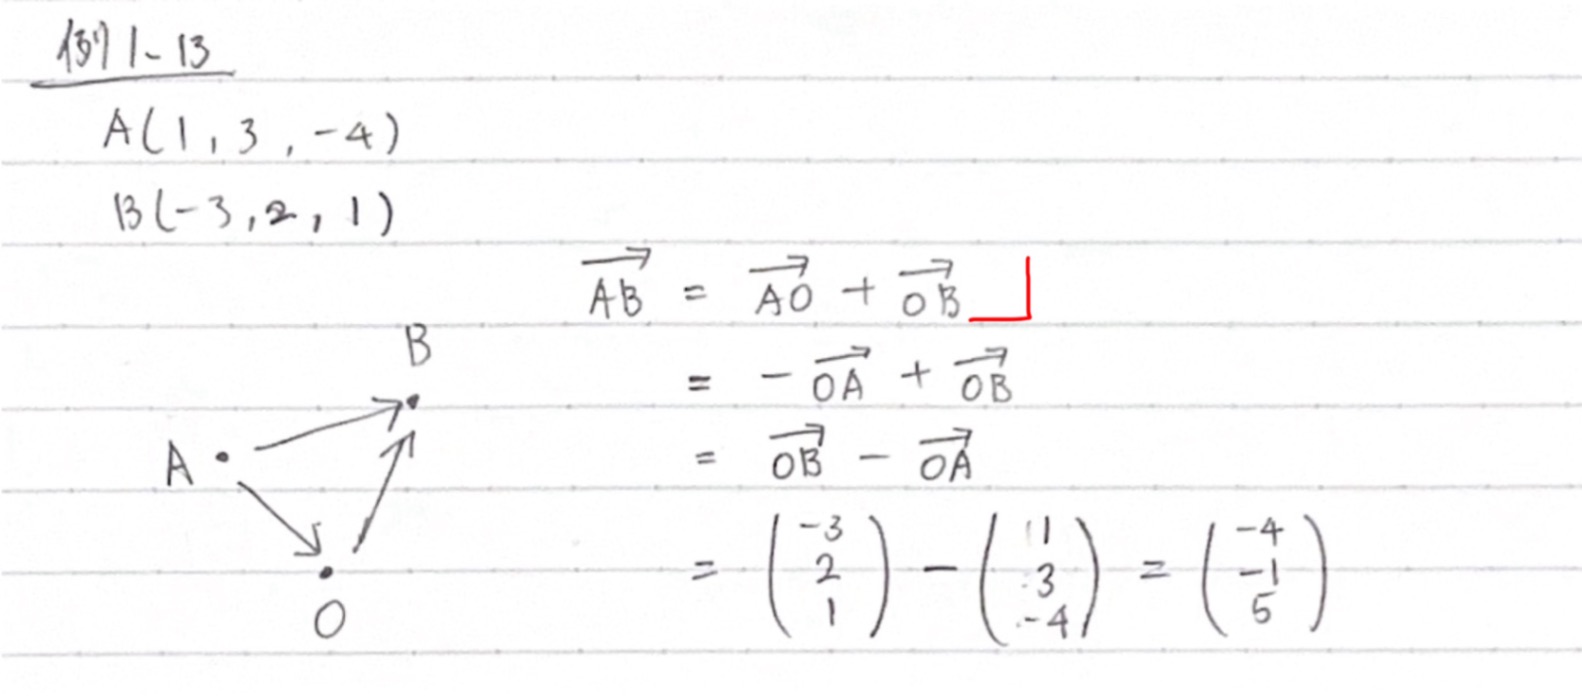 例1-13
A(1, 3, -4)
B(-3, 2, 1)
$\overrightarrow{AB} = \overrightarrow{AO} + \overrightarrow{OB}$
$= -\overrightarrow{OA} + \overrightarrow{OB}$
$= \overrightarrow{OB} - \overrightarrow{OA}$
$= \begin{pmatrix} -3 \\ 2 \\ 1 \end{pmatrix} - \begin{pmatrix} 1 \\ 3 \\ -4 \end{pmatrix} = \begin{pmatrix} -4 \\ -1 \\ 5 \end{pmatrix}$
B
A
O